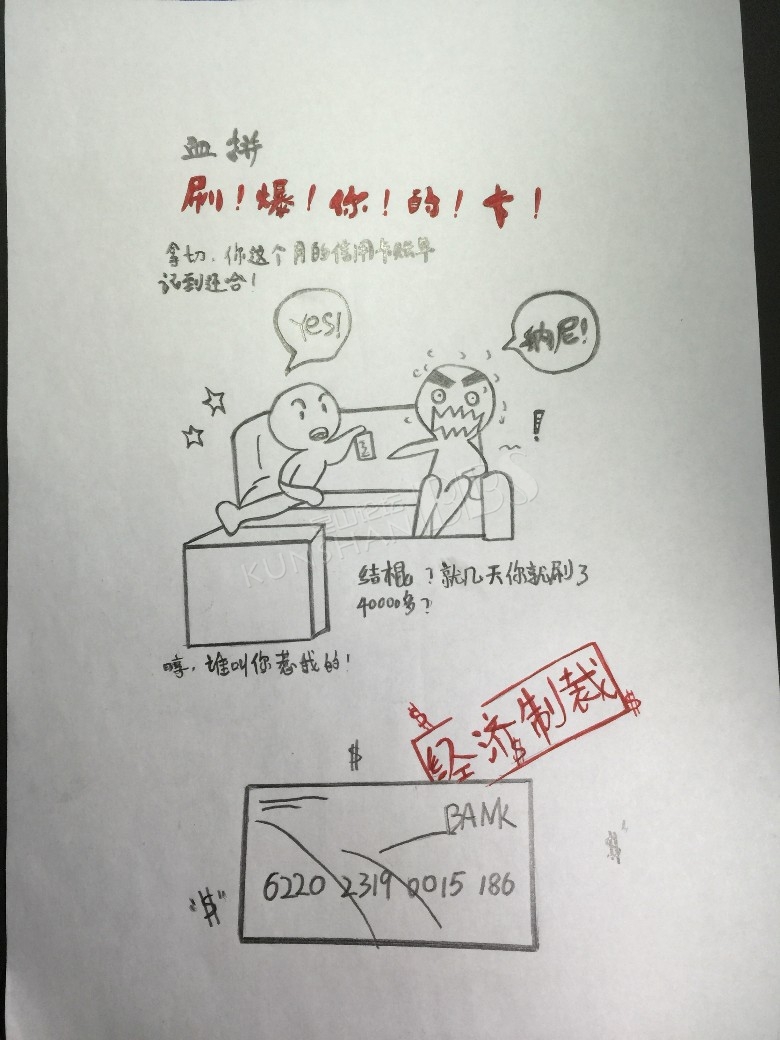 血拼
刷！爆！你！的！卡！
拿切，你这个月的信用卡账单
记到还哈！
Yes!
纳尼！
!
结棍？就几天你就刷了
40000多？
哼，谁叫你惹我的！
经济制裁
$
$
$
$
BANK
6220 2319 0015 186
"$"
$
KUNSHAN BBS